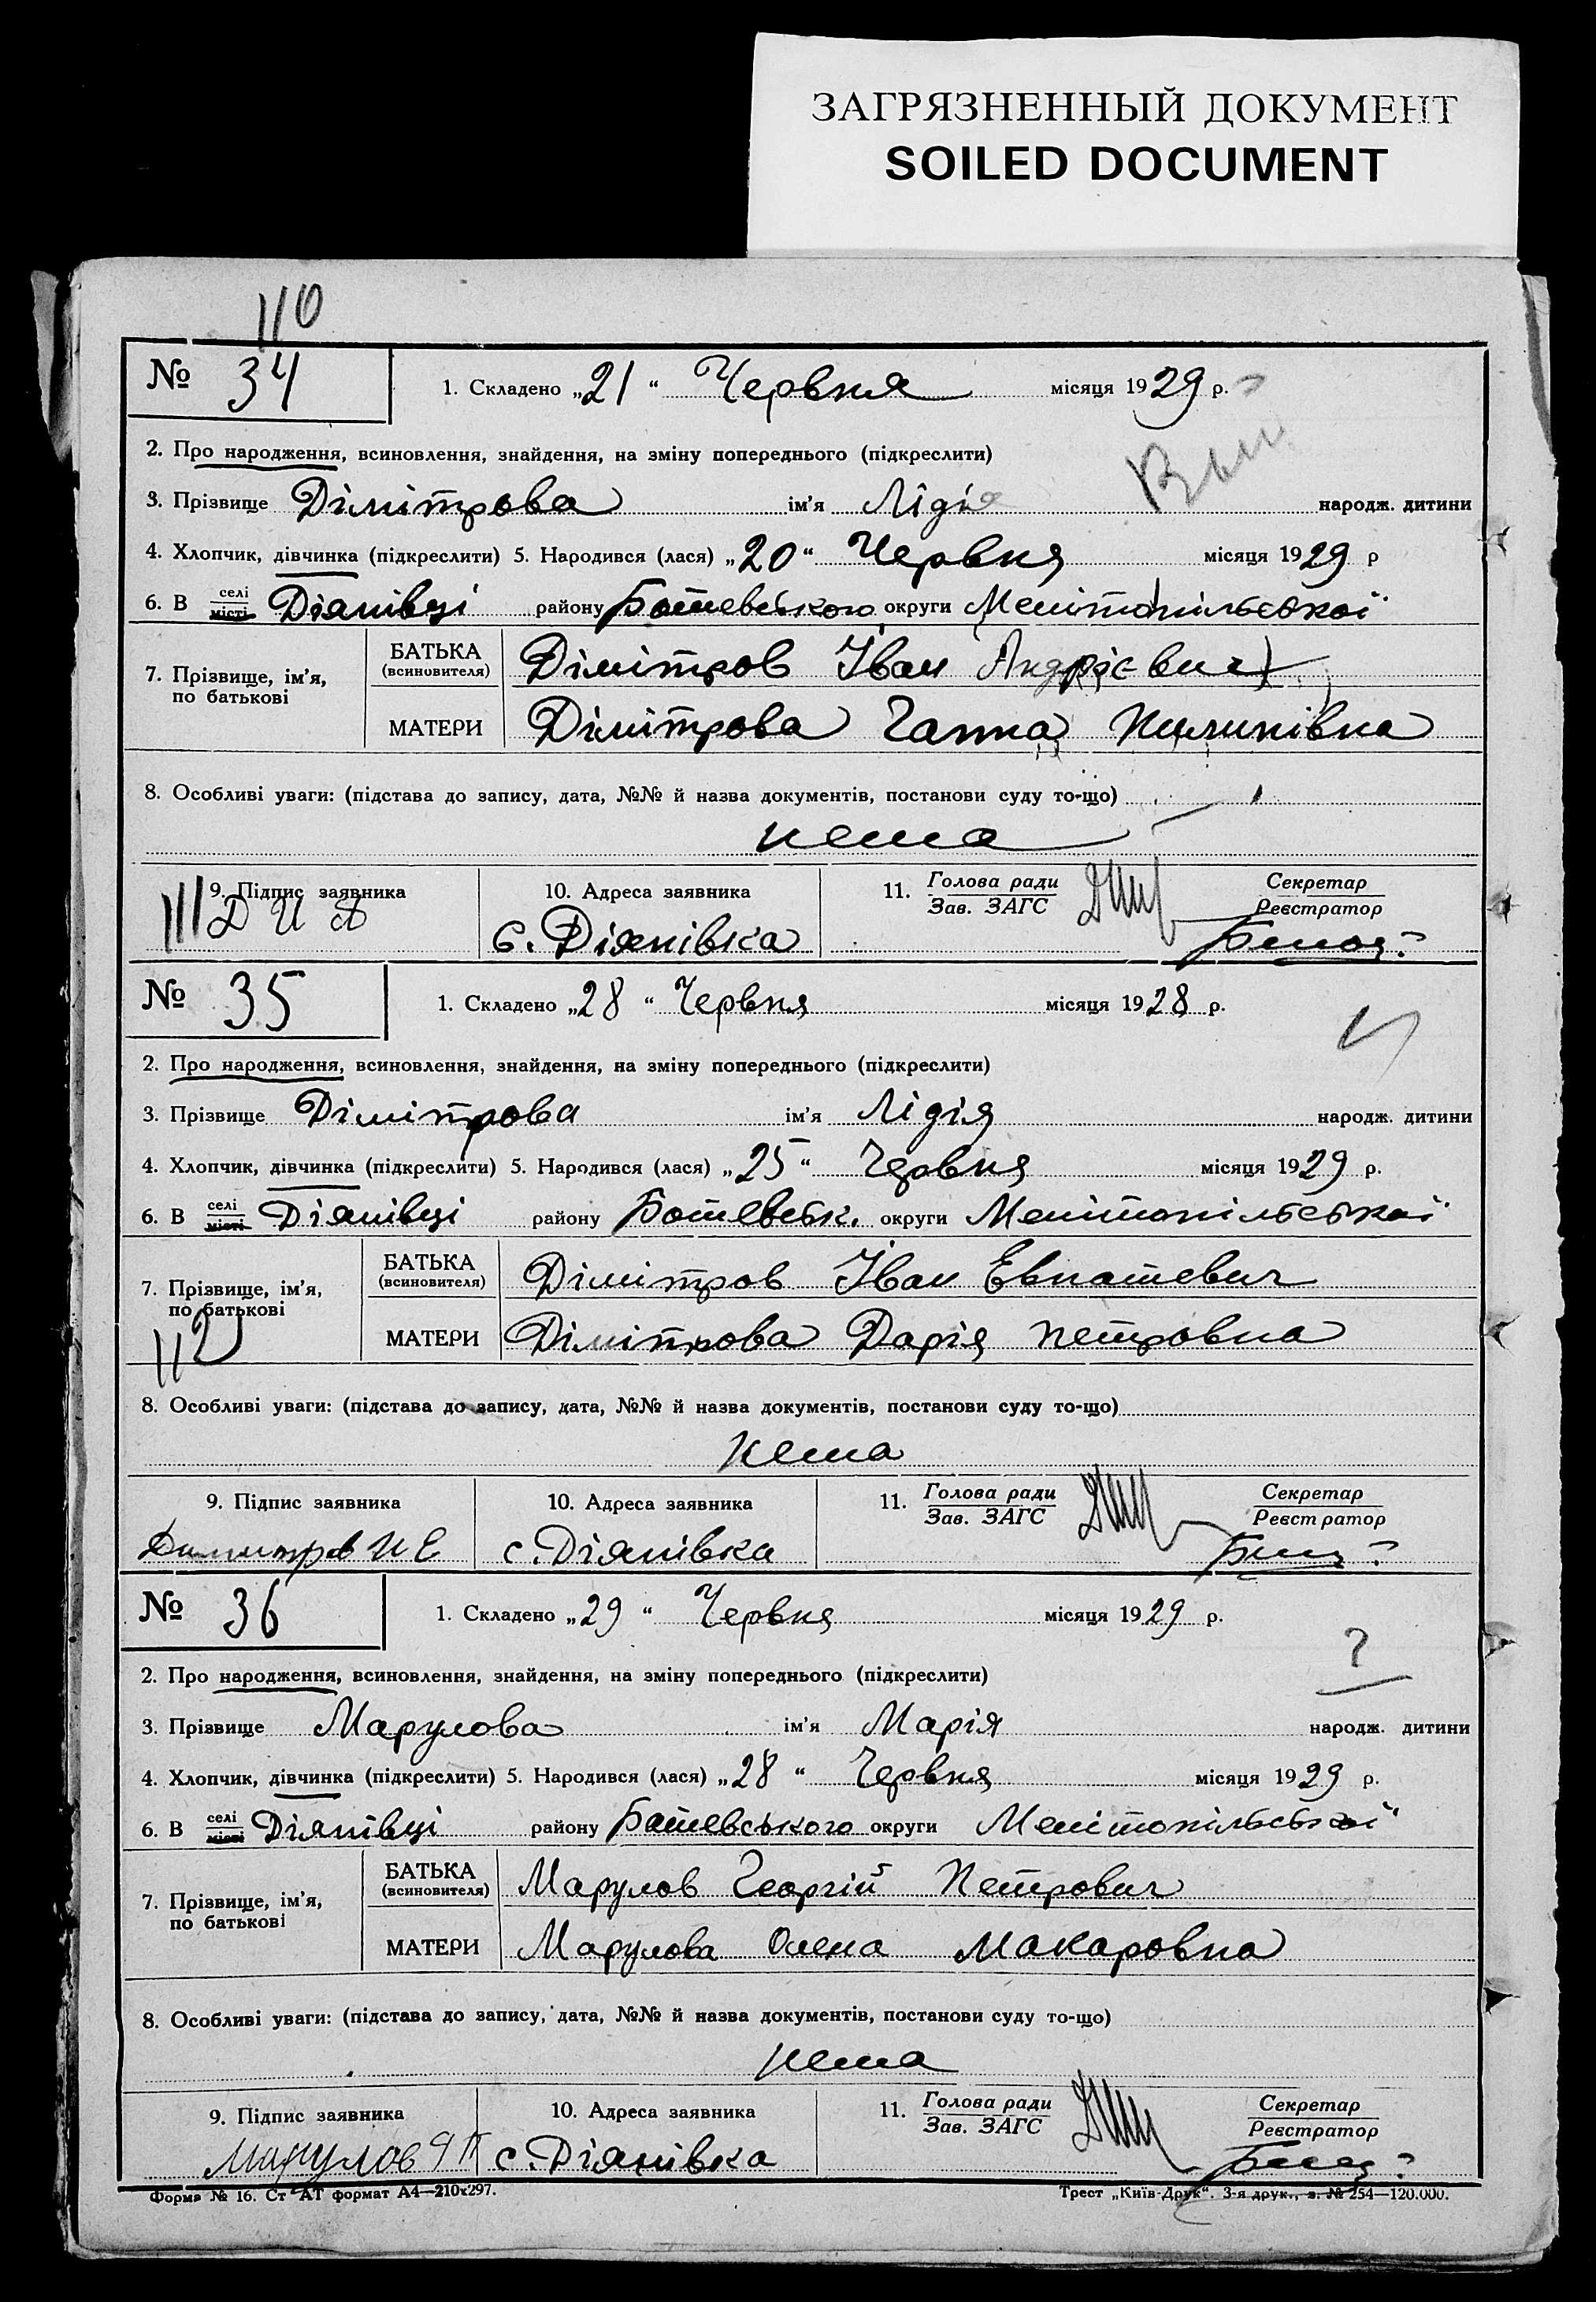 ЗАГРЯЗНЕННЫЙ ДОКУМЕНТ
SOILED DOCUMENT
110
№ 34
1. Складено „21“ Червня місяця 1929 р.
2. Про народження, всиновлення, знайдення, на зміну попереднього (підкреслити)
3. Прізвище Дімітрова ім'я Лідія народж. дитини
4. Хлопчик, дівчинка (підкреслити) 5. Народився (лася) „20“ Червня місяця 1929 р
6. В селі місті Діянівці району Ботевського округи Мелітопільської
7. Прізвище, ім'я, по батькові
БАТЬКА (всиновителя) Дімітров Іван Андрієвич
МАТЕРИ Дімітрова Ганна Пилипівна
8. Особливі уваги: (підстава до запису, дата, №№ й назва документів, постанови суду то-що)
нема
111
9. Підпис заявника
Д И А
10. Адреса заявника
с. Діянівка
11. Голова ради Зав. ЗАГС
Секретар Реєстратор
№ 35
1. Складено „28“ Червня місяця 1928 р.
2. Про народження, всиновлення, знайдення, на зміну попереднього (підкреслити)
3. Прізвище Дімітрова ім'я Лідія народж. дитини
4. Хлопчик, дівчинка (підкреслити) 5. Народився (лася) „25“ Червня місяця 1929 р.
6. В селі місті Діянівці району Ботевськ. округи Мелітопільської
7. Прізвище, ім'я, по батькові
БАТЬКА (всиновителя) Дімітров Іван
МАТЕРИ Дімітрова Дарія Петровна
112
8. Особливі уваги: (підстава до запису, дата, №№ й назва документів, постанови суду то-що)
Нема
9. Підпис заявника
Димитров И Е
10. Адреса заявника
с. Діянівка
11. Голова ради Зав. ЗАГС
Секретар Реєстратор
№ 36
1. Складено „29“ Червня місяця 1929 р.
?
2. Про народження, всиновлення, знайдення, на зміну попереднього (підкреслити)
3. Прізвище Марулова ім'я Марія народж. дитини
4. Хлопчик, дівчинка (підкреслити) 5. Народився (лася) „28“ Червня місяця 1929 р.
6. В селі місті Діянівці району Ботевського округи Мелітопільської
7. Прізвище, ім'я, по батькові
БАТЬКА (всиновителя) Марулов Георгій Петрович
МАТЕРИ Марулова Олена Макаровна
8. Особливі уваги: (підстава до запису, дата, №№ й назва документів, постанови суду то-що)
нема
9. Підпис заявника
Марулов
10. Адреса заявника
с. Діянівка
11. Голова ради Зав. ЗАГС
Секретар Реєстратор
Форма № 16. Ст АТ формат А4—210х297.
Трест „Київ-Друк“. 3-я друк., з. № 254—120.000.